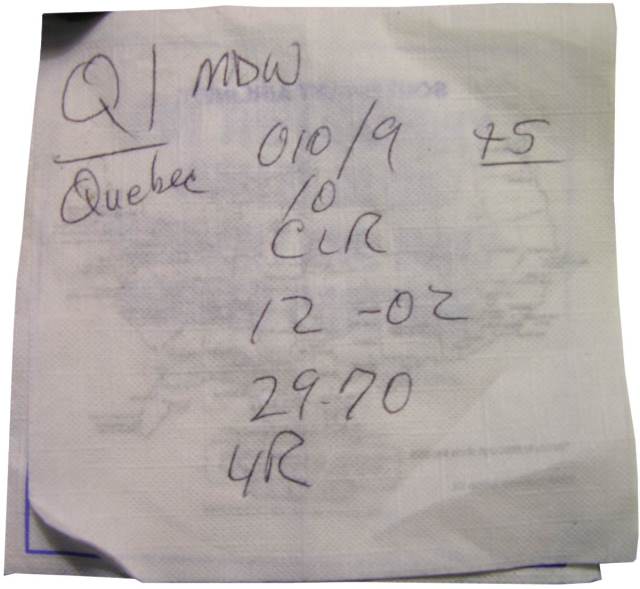 Q | MDW
Quebec 010/9 +5
10
CLR
12 -02
29.70
4R